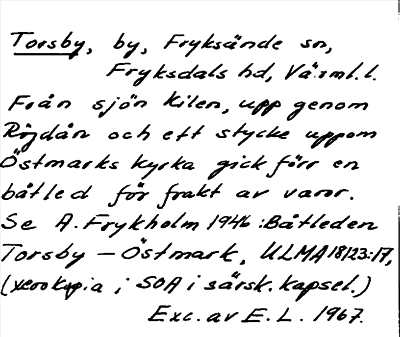 Torsby, by, Fryksände sn,
Fryksdals hd, Värml. l.
Från sjön Kilen, upp genom
Röjdån och ett stycke uppom
Östmarks kyrka gick förr en
båtled för frakt av varor.
Se A. Frykholm 1946: Båtleden
Torsby – Östmark, ULMA 18123:17,
(xerokopia i SOA i särsk. kapsel.)
Exc. av E. L. 1967.